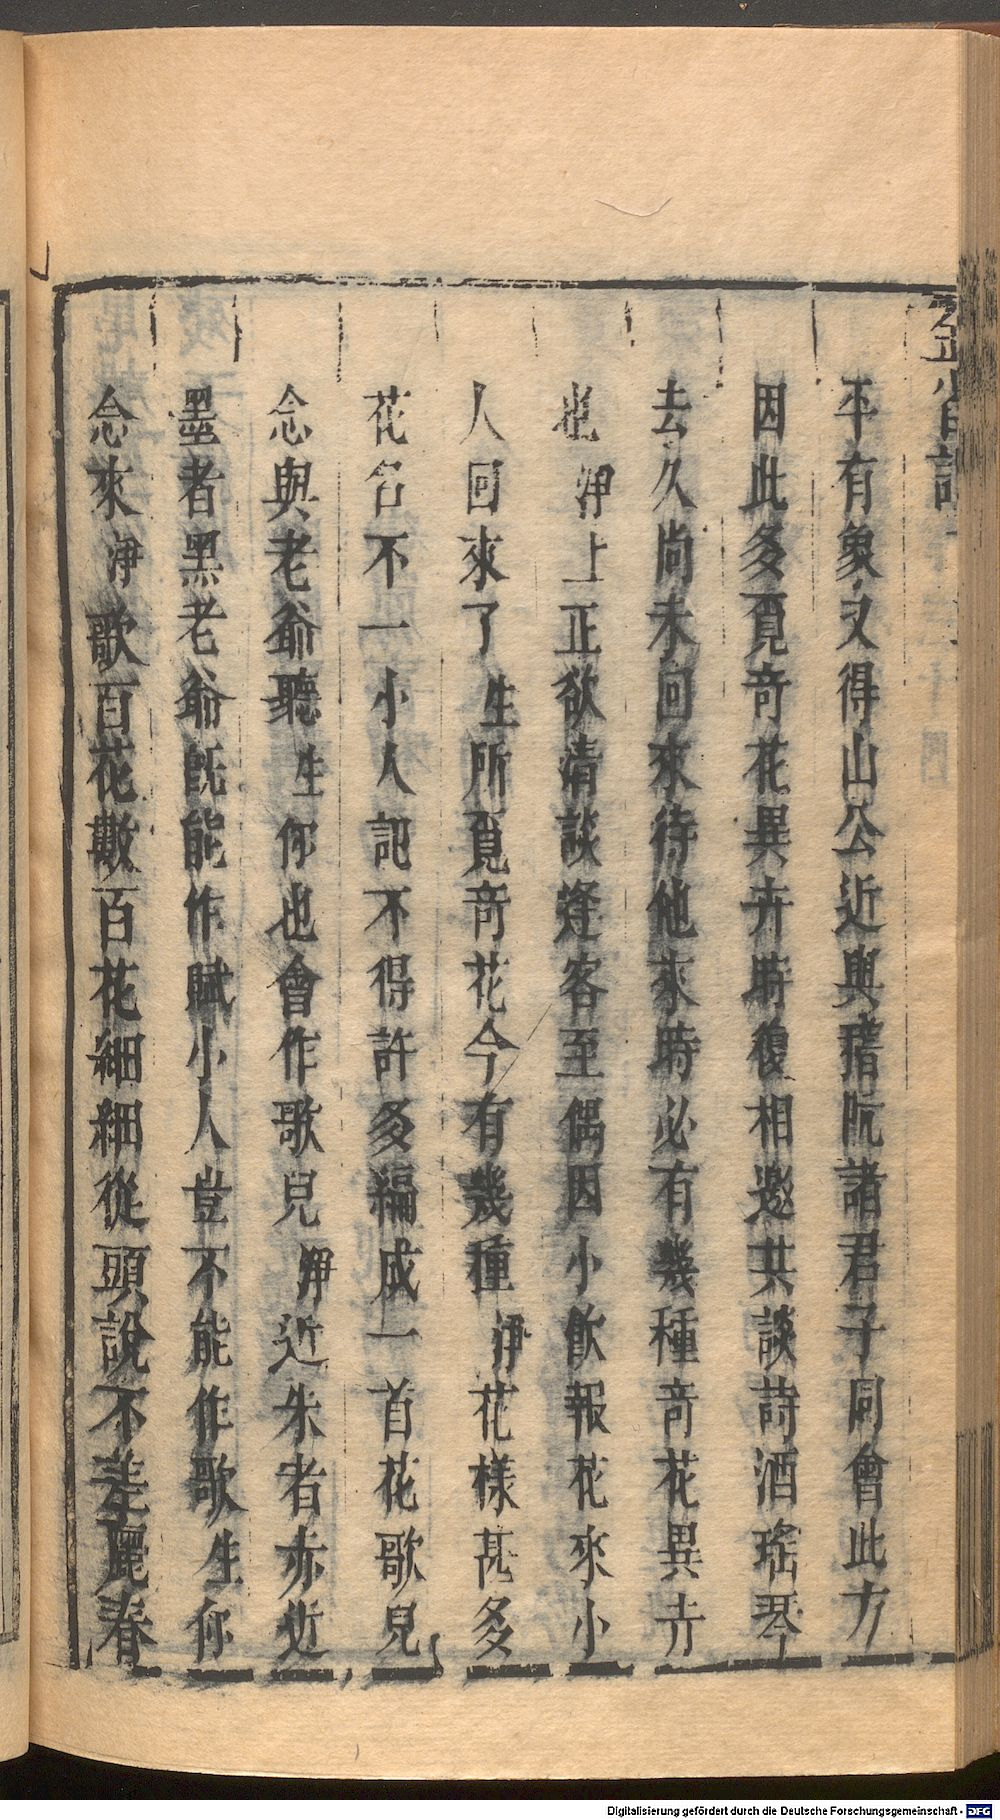 平有象又得山公近與稽阮諸君子同會此方
因此多覓奇花異卉時復相邀共談詩酒瑤琴
去久尚未回來待他來時必有幾種奇花異卉
也淨上正欲清談逢客至偶因小飲報花來小
人回來了生所覓奇花今有幾種淨花樣甚多
花名不一小人記不得許多編成一首花歌兒
念與老爺聽生你也會作歌兒淨近朱者赤近
墨者黑老爺旣能作賦小人豈不能作歌生你
念來淨歌百花數百花細細從頭說不差麗春
Digitalisierung gefördert durch die Deutsche Forschungsgemeinschaft - DFG